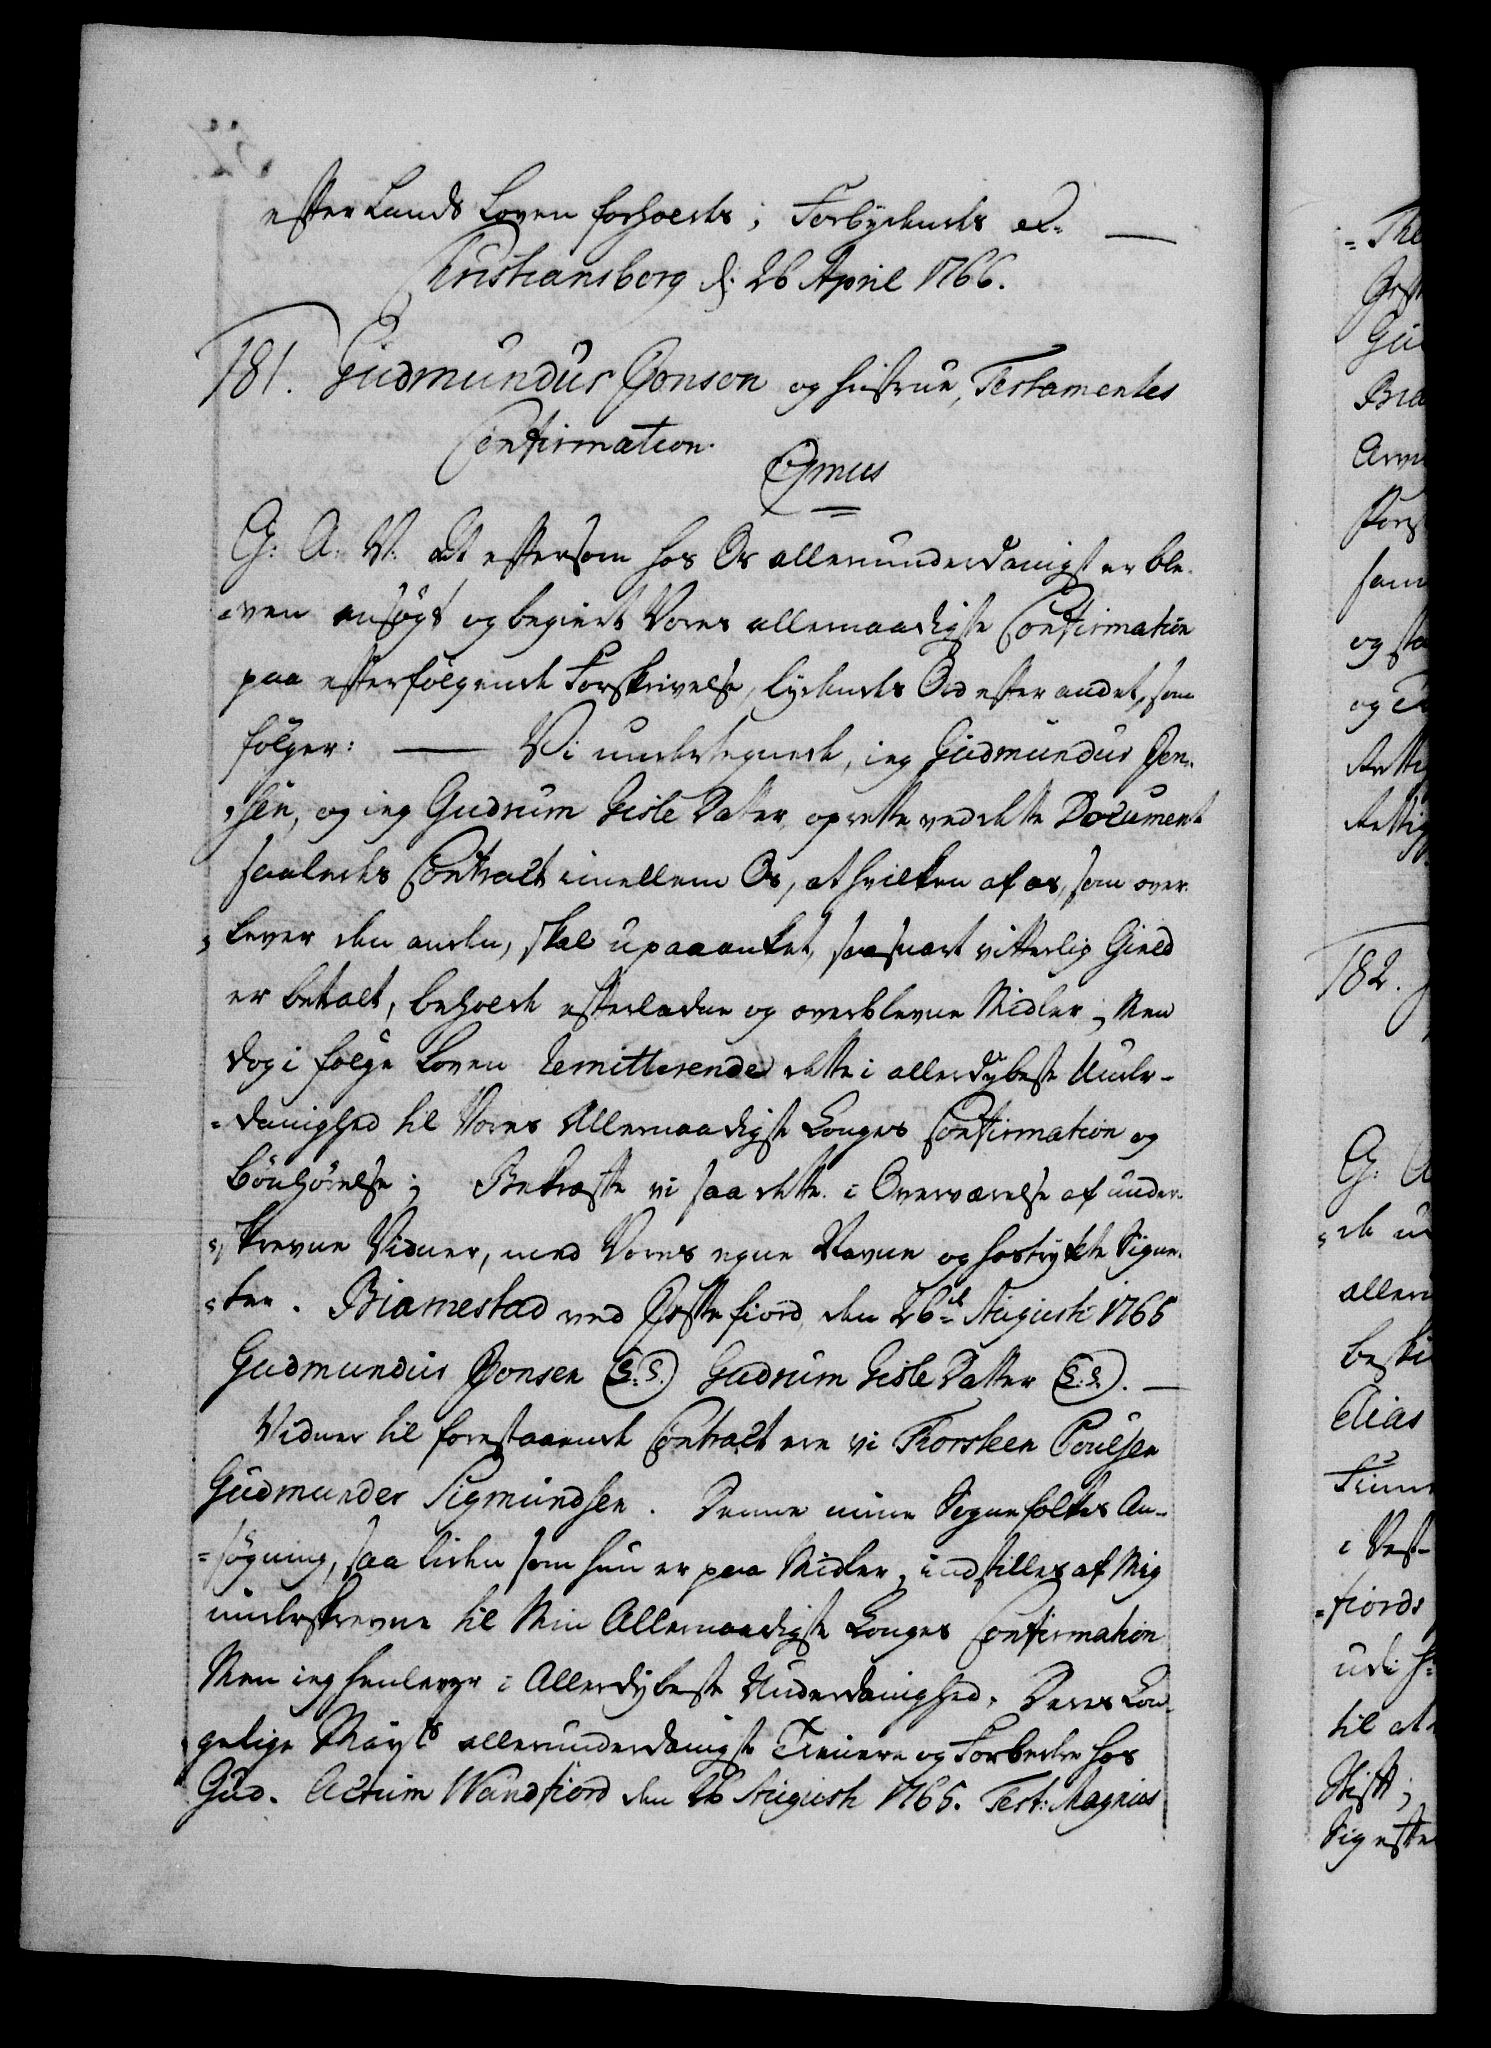 efter Lands Loven forholdes; Forbydendes etc. —
Christiansborg d: 26 April 1766.
181. Gudmundus Jonson og Hustrue, Testamentes
Confirmation.
Gjmus
G: A: V: At eftersom hos Os allerunderdanigst er ble-
-ven ansøgt og begiert Vores allernaadigste Confirmation
paa efterfølgende Forskrivelse, lydendes Ord efter andet, som
følger: — Vi undertegnede, ieg Gudmundus Jon-
-sen, og ieg Gudrum Gisle Datter, oprette ved dette Document
saaledes Contract imellem Os, at hvilken af os, som over-
-lever den anden, skal upaaanket, saasnart vitterlig Gield
er betalt, beholde efterladne og overblevne Midler; Men
dog i følge Loven Remitterende dette i allerdybeste Under-
-danighed til Vores Allernaadigste Konges Confirmation og
Bønhørelse; Bekræfte vi saa dette i Overværelse af under-
-skrevne Vidner, med Vores egne Navne og hostrykte Signe-
-ter. Biarnestad ved Jøstefiord, den 26de Augusti 1765
Gudmundus Jonsen (L.S.) Gudrum Gisle Datter (L.S.). —
Vidner til forestaaende Contract ere vi Thorsteen Poulsen
Gudmunder Sigmundsen. Denne mine Sognefolkes An-
-søgning, saa liden som hun er paa Midler, indstilles af Mig
underskrevne til Min Allernaadigste Konges Confirmation
Men ieg henlever i Allerdybeste Underdanighed, Deres Kon-
gelige Mayts allerunderdanigste Tienere og Forbedre hos
Gud. Actum Wandfiord den 26 Augusti 1765. Test: Magnus
182.
G: A
Elias
i Vest-
-fiords